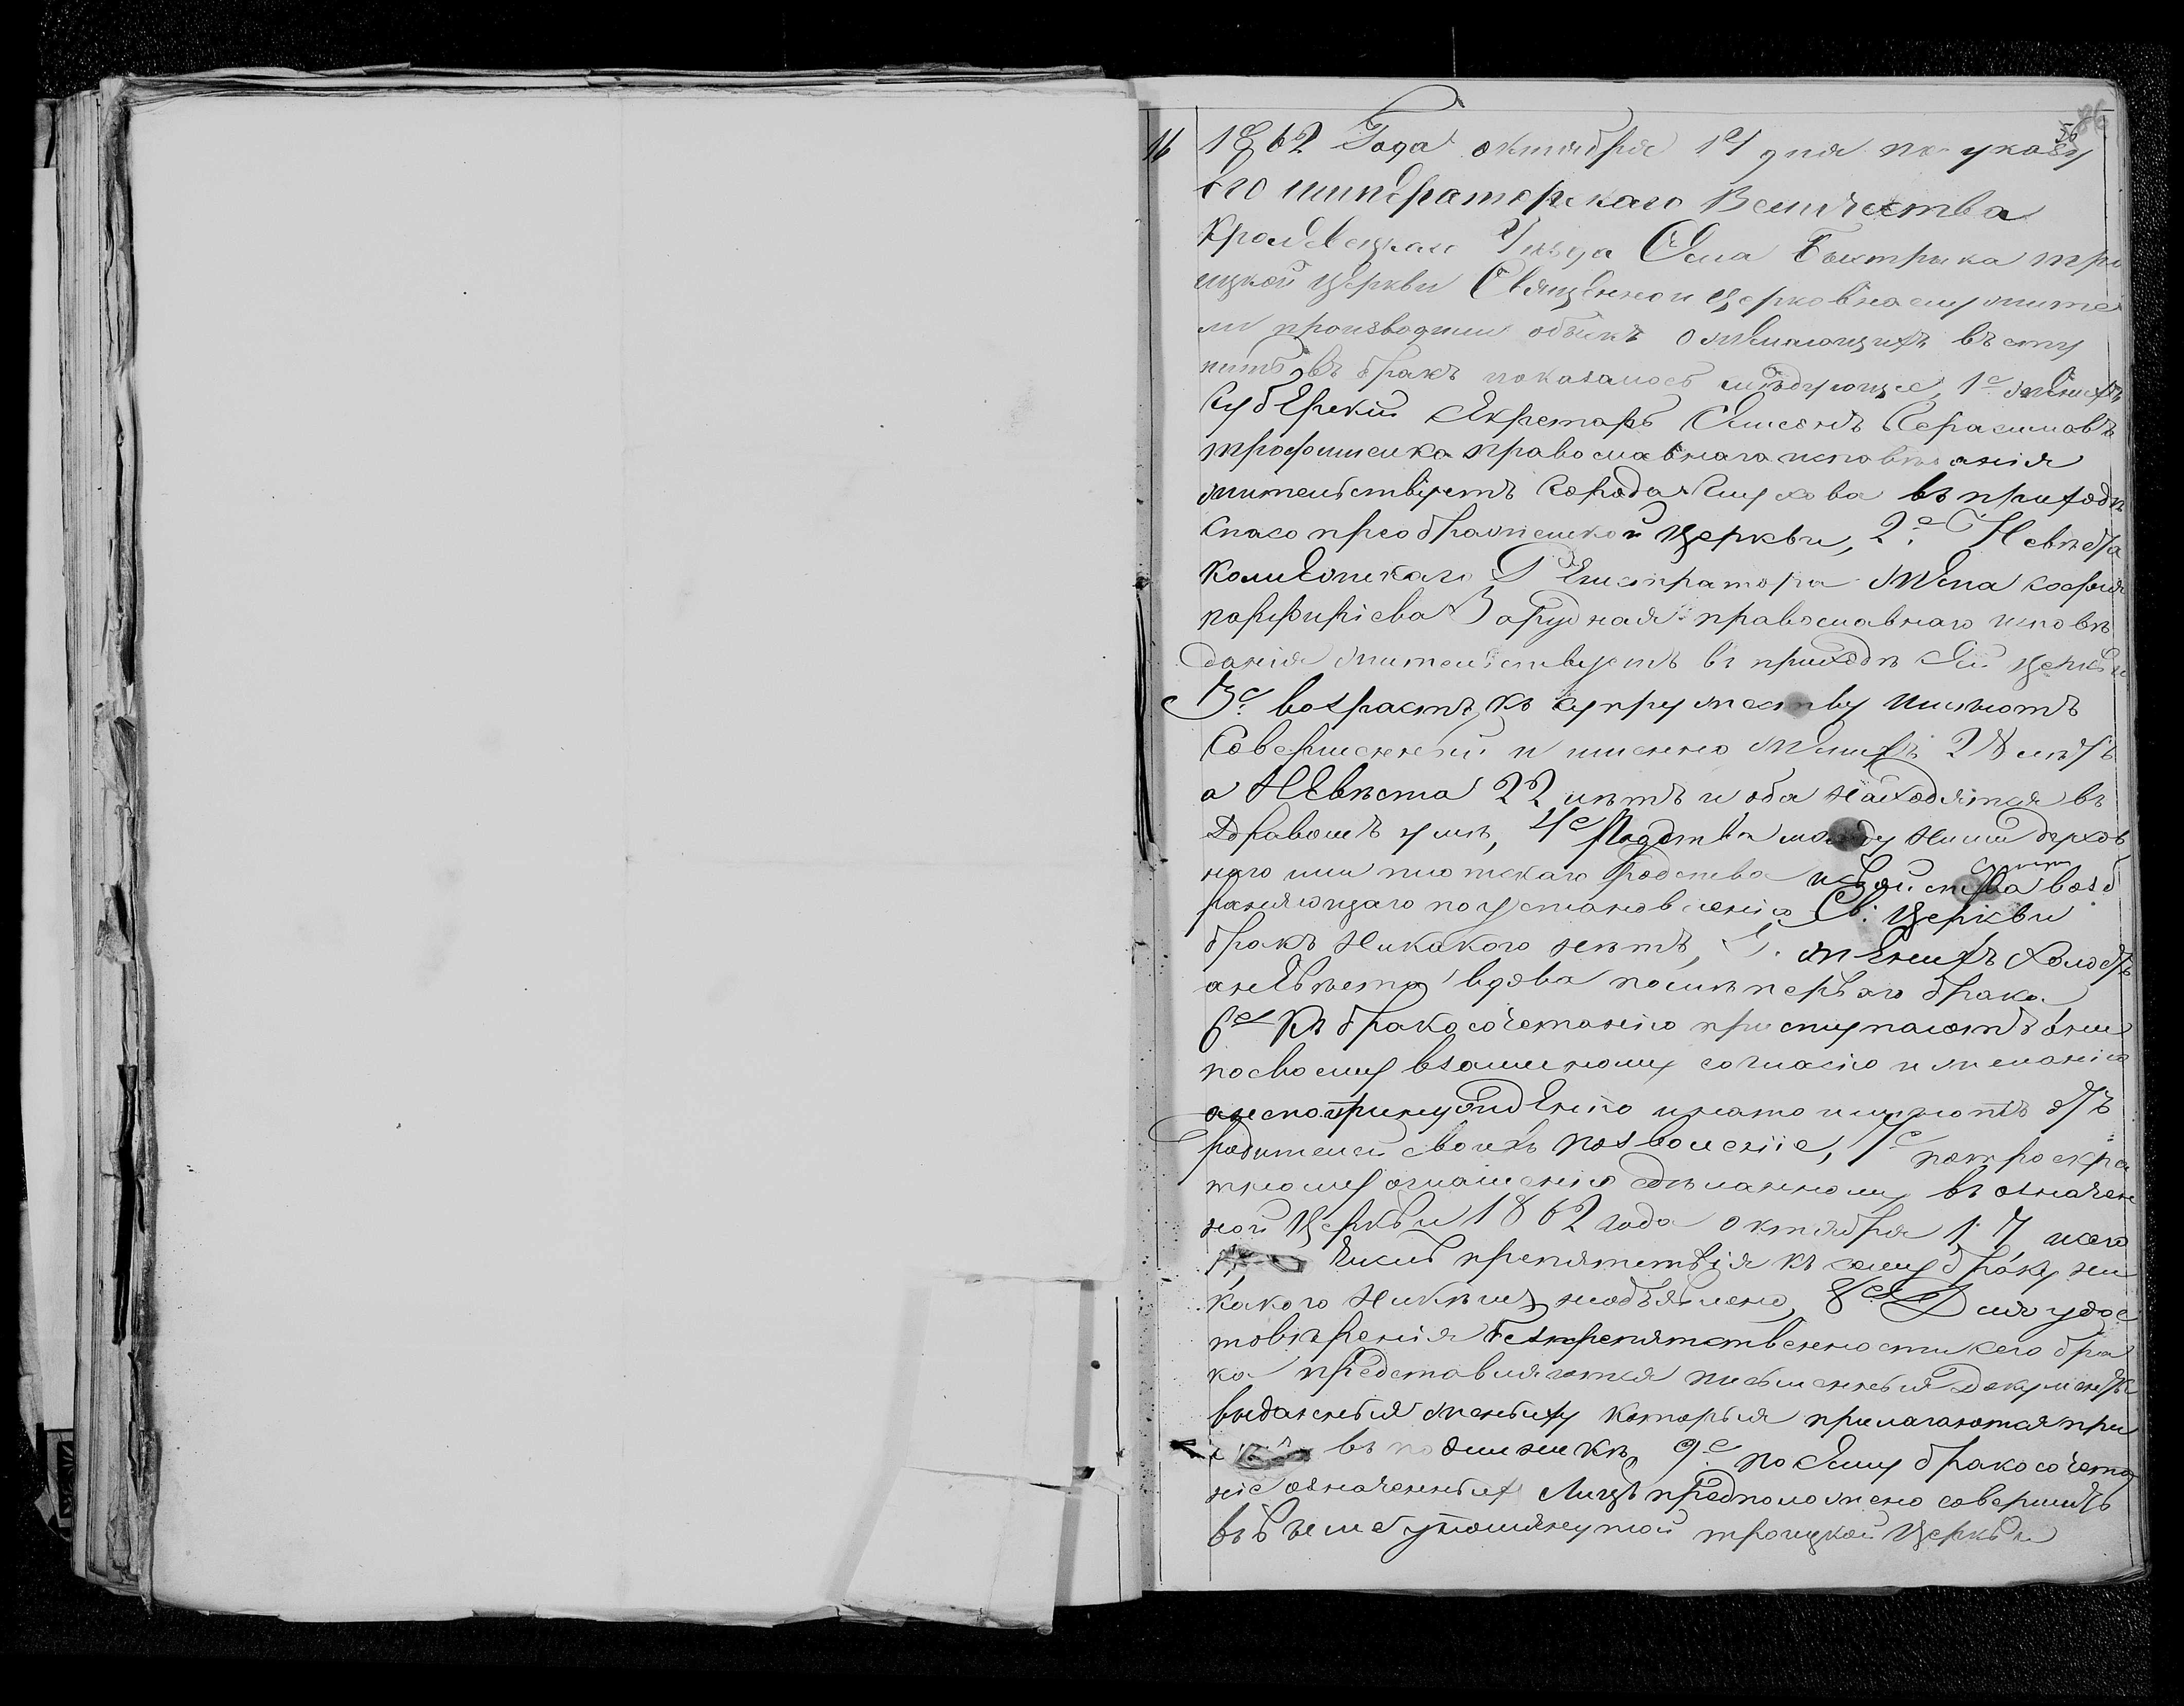 86
56
16 1862 Года октября 17 дня по указу
его императорскаго Величества
Кролевецкаго Уезда Села Быстрика тро
ицкой Церкви Священно и Церковнослужите
ли производили обыскъ о желающихъ всту
пить въ бракъ показалось слѣдующее, 1е женихъ
Губернскій Секретарь Симеонъ Герасимовъ
трофименко православнаго исповѣданія
жительствуетъ города Глухова въ приходѣ
спасо преображенской Церкви, 2е Невѣста
Колежскаго Регистратора Жена софия
порфиріева Зарудная православнаго исповѣ
данія жительствуетъ въ приходѣ сей церкви
3е возрастъ къ супружеству имѣютъ
Совершенный и именно Женихъ 28 лѣтъ
а Невѣста 22 лѣтъ и оба находятся въ
здравомъ умѣ, 4е Родства между ними духов
наго или плотскаго родства и свойства возб
раняющаго по установленію Св: Церкви
бракъ никакого нѣтъ, 5. женихъ холостъ
а невѣста вдова послѣ перваго брака
6е Къ бракосочетанію приступаютъ они
по своему взаимному согласію и желанію
а не по принужденію и на то имѣютъ отъ
родителей своихъ позволеніе, 7е по троекра
тному оглашенію сдѣланному въ означен
ной Церкви 1862 года октября 17
препятствія къ сему браку ни
какого никѣмъ необъявлено, 8е Для удос
товѣренія безпрепятственности сего бра
ка представляются письменныя документы
выданныя жениху которыя прилагаются при
въ подлинникѣ 9е по сему бракосочета
ніе означенныхъ лицъ предположено совершить
въ вышеупомянутой троицкой Церкви